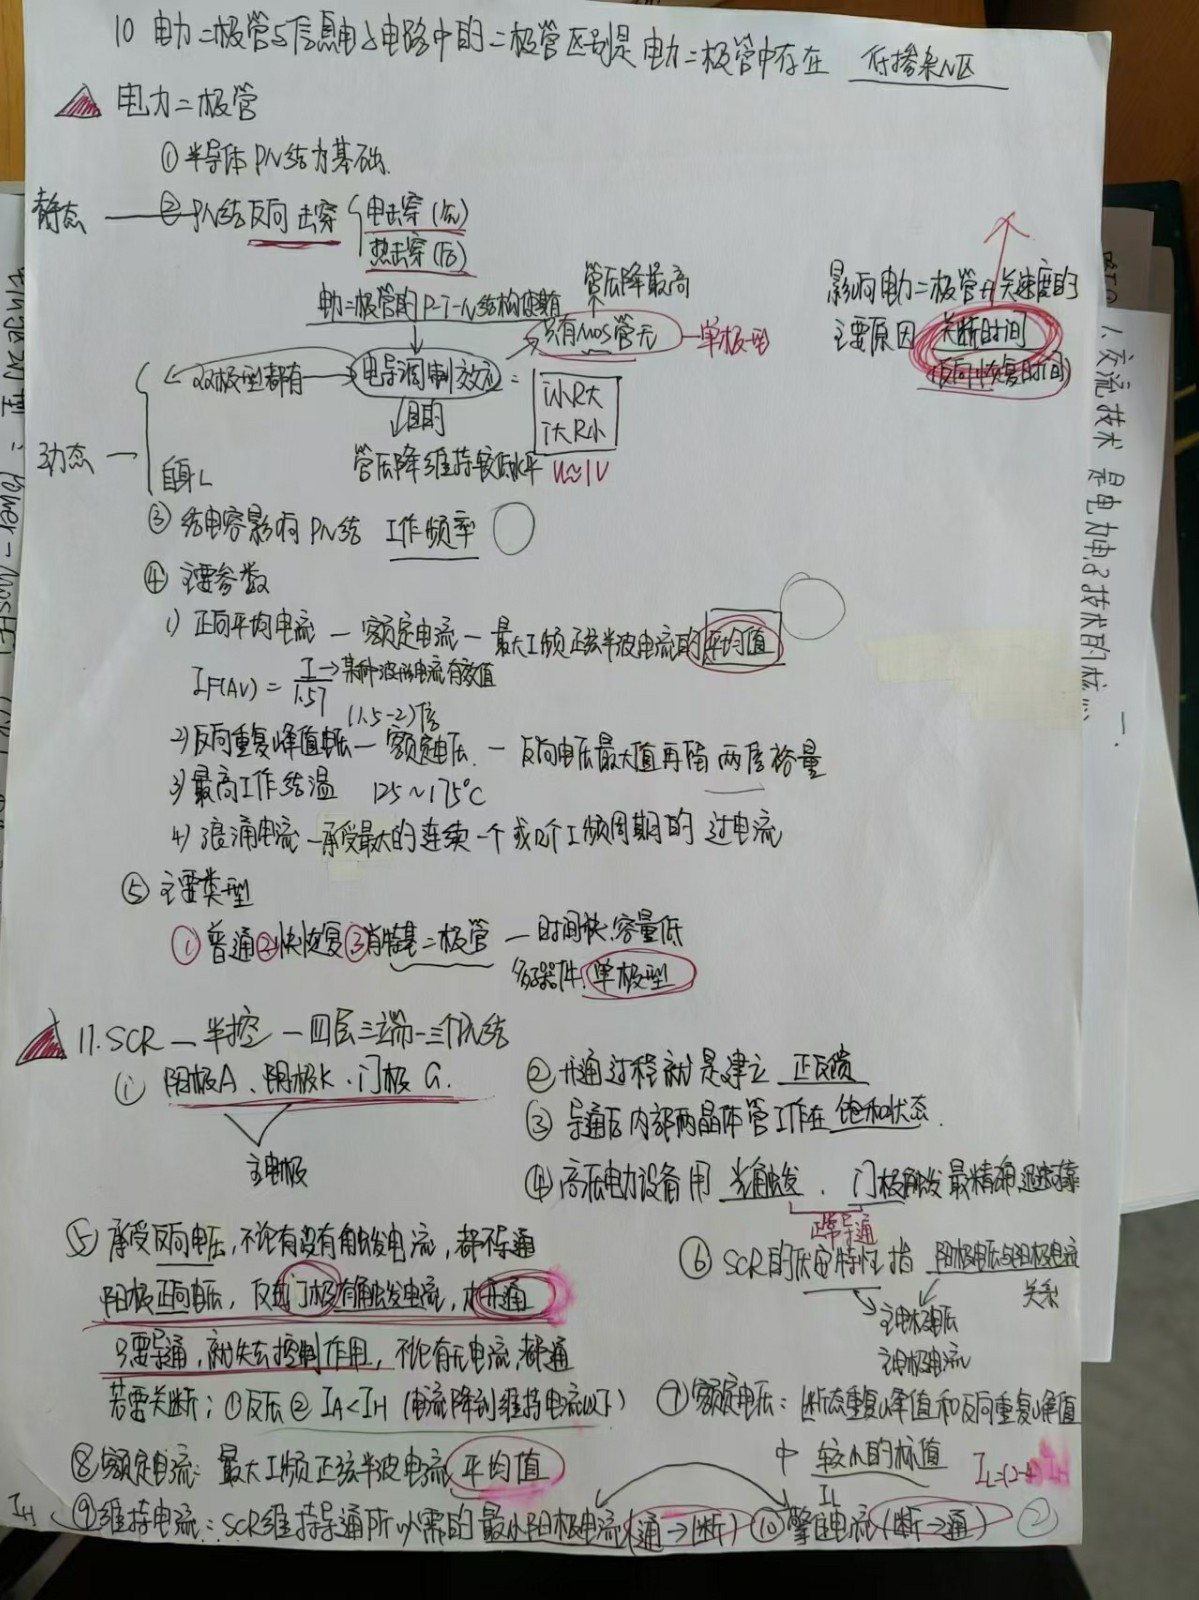 10 电力二极管与信息电子电路中的二极管区别是 电力二极管中存在 低掺杂N区
电力二极管
① 半导体PN结为基础.
静态 ② PN结反向击穿 电击穿(先)
热击穿(后)
电力二极管的P-I-N结构使其有
管压降最高
只有MOS管无 单极型
双极型都有 电导调制效应 =
i小R大
i大R小
U≈1V
目的
管压降维持较低水平
动态
自身L
影响电力二极管开关速度的
主要原因 关断时间
(反向恢复时间)
③ 结电容影响PN结 工作频率
④ 主要参数
1) 正向平均电流 — 额定电流 — 最大工频正弦半波电流的平均值
IF(AV) = I/1.57 → 某种波形电流有效值
(1.5-2)倍
2) 反向重复峰值电压 — 额定电压. — 反向电压最大值再留 两倍裕量
3) 最高工作结温 125~175°C
4) 浪涌电流 — 承受最大的连续一个或几个工频周期的过电流
⑤ 主要类型
① 普通 ② 快恢复 ③ 肖特基二极管 — 时间快.容量低
多子器件. 单极型
11. SCR — 半控 — 四层三端 — 三个PN结
① 阳极A、阴极K、门极G.
主电极
② 开通过程就是建立 正反馈
③ 导通后内部两晶体管工作在 饱和状态.
④ 高压电力设备用 光触发. 门极触发最精确迅速可靠
正常导通
⑤ 承受反向电压,不论有没有触发电流,都不导通
阳极正向电压,及其门极有触发电流,才开通
只要导通,就失去控制作用,不论有无电流,都通
若要关断: ① 反压 ② IA<IH (电流降到维持电流以下)
⑥ SCR的伏安特性指 阳极电压与阳极电流
关系
主电极电压
主电极电流
⑦ 额定电压: 断态重复峰值和反向重复峰值
中 较小的标值
⑧ 额定电流: 最大工频正弦半波电流平均值
IL=(2-4)IH
IH ⑨ 维持电流: SCR维持导通所必需的最小阳极电流(通→断) ⑩ 擎住电流(断→通)
IL
②
1、变流技术 是电力电子技术的核心
一、